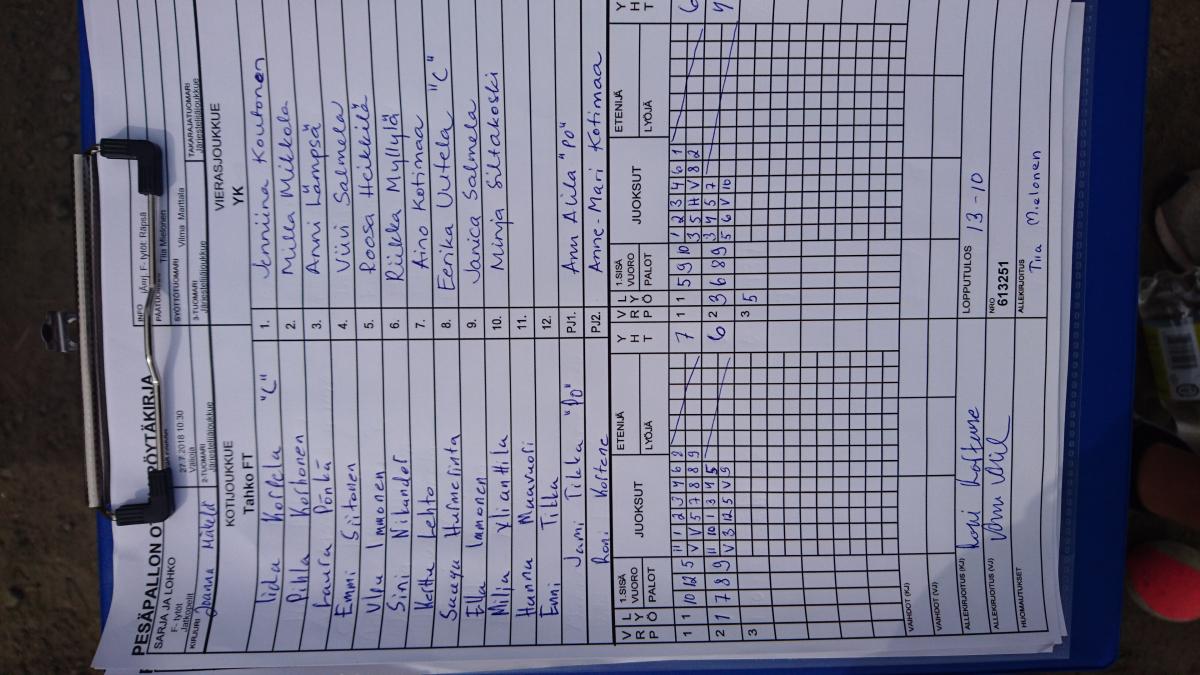 PESÄPALLON O PÖYTÄKIRJA
SARJA JA LOHKO
F- tytöt
Jatkopelit
27.7.2018 10:30
INFO (Ärj. F- tytöt Räpsä
Tiia Mielonen
KIRJURI Joanna Mäkelä
2-TUOMARI
Järjestelijäjoukkue
SYÖTTÖTUOMARI Vilma Marttala
3-TUOMARI
Järjestelijäjoukkue
TAKARAJATUOMARI
Järjestelijäjoukkue
KOTIJOUKKUE
Tahko FT
VIERASJOUKKUE
YK
Iida Korpela "C" 1. Jenniina Koutonen
Pihla Korhonen 2. Milla Mikkola
Laura Pönkä 3. Anni Lämpsä
Emmi Siitonen 4. Viivi Salmela
Ulla Immonen 5. Roosa Heikkilä
Sini Nikander 6. Riikka Myllylä
Kettu Lehto 7. Aino Kotimaa
Hurmerinta 8. Eerika Uutela "C"
Ella Immonen 9. Janica Salmela
Milja Ylianttila 10. Minja Siltakoski
Hannu Maavuori 11.
Enni Tikka 12.
Jami Tikka "PO" PJ1. Anu Aila "PO"
PJ2. Anne-Mari Kotimaa
V L
R Y
P Ö
1.SISÄ
VUORO
PALOT
JUOKSUT
ETENIJÄ
LYÖJÄ
Y
H
T
V L
R Y
P Ö
1.SISÄ
VUORO
PALOT
JUOKSUT
ETENIJÄ
LYÖJÄ
Y
H
T
1 1 10 12 5 11 1 2 3 4 6 2 7
V V 5 7 8 8 9
2 1 7 8 9 11 10 1 3 4 5 6
V 3 12 5 V 9
3
1 1 5 9 10 1 2 3 4 6 1 6
3 5 H V 8 2
2 3 6 8 9 3 4 5 7 4
5 6 V 10
3 5
VAIHDOT (KJ)
VAIHDOT (VJ)
ALLEKIRJOITUS (KJ)
ALLEKIRJOITUS (VJ)
HUOMAUTUKSET
LOPPUTULOS 13 - 10
NRO
613251
ALLEKIRJOITUS
Tiia Mielonen